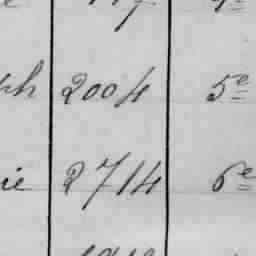 ph 2004 5e
ie 2714 6e